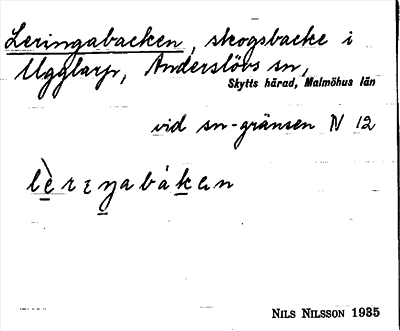 Leringabacken, skogsbacke i
Ugglarp, Anderslövs sn,
Skytts härad, Malmöhus län
vid sn-gränsen N 12
NILS NILSSON 1935